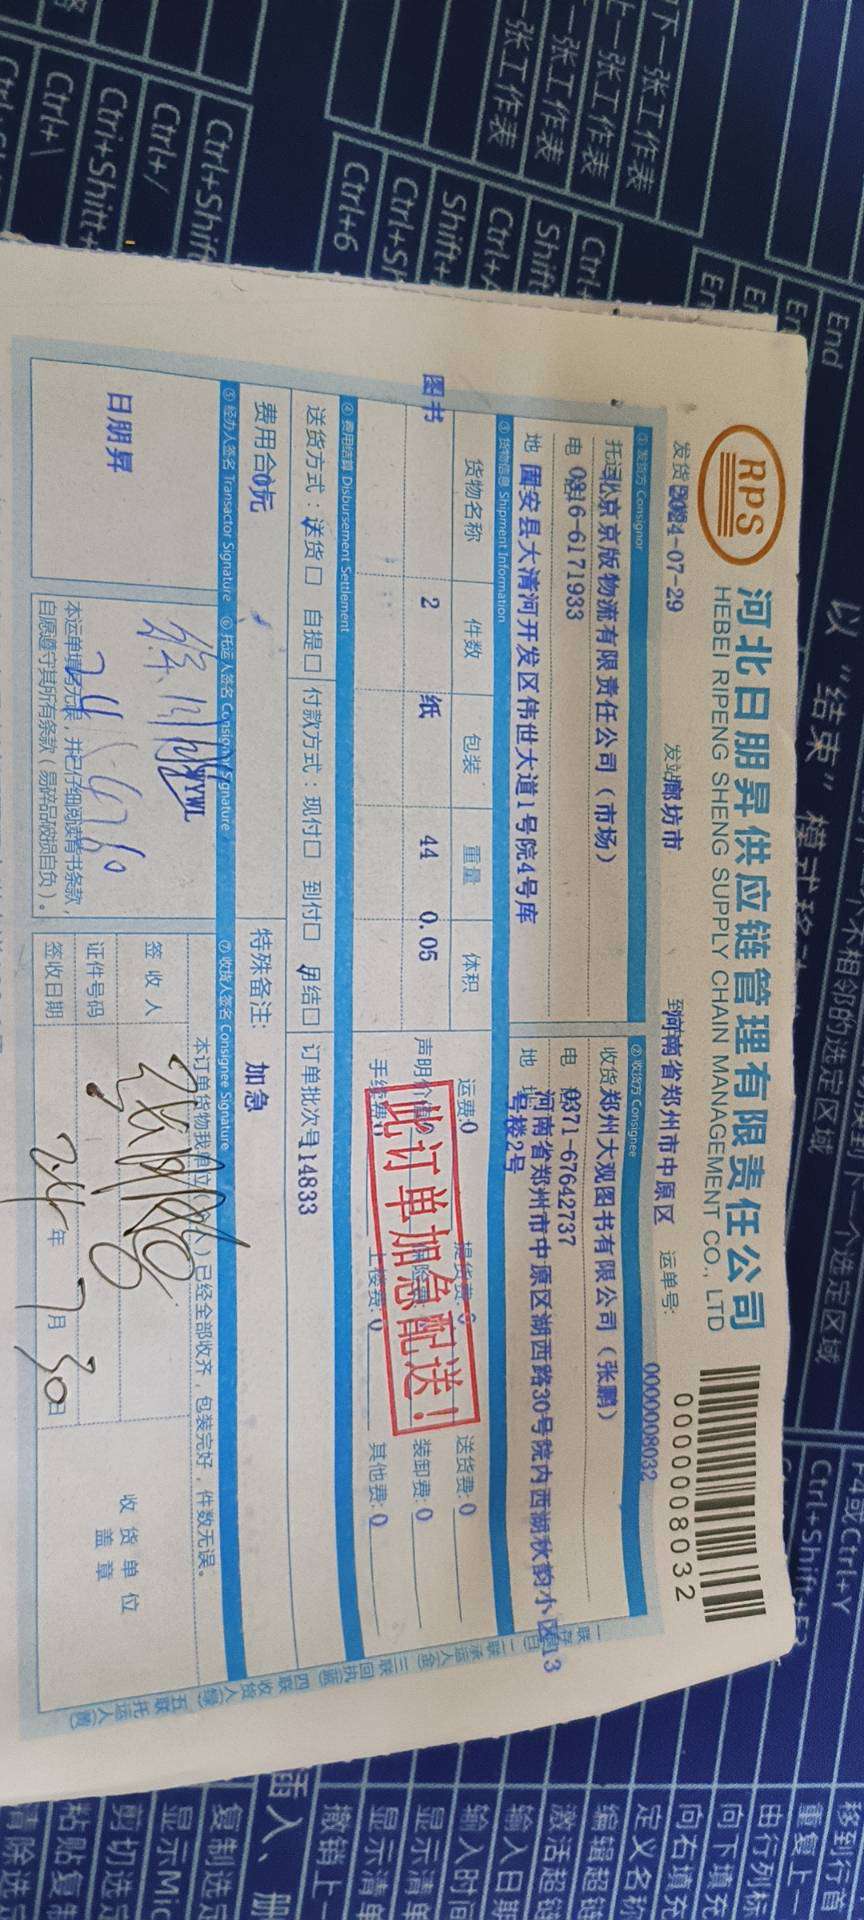 RPS
河北日朋昇供应链管理有限责任公司
HEBEI RIPENG SHENG SUPPLY CHAIN MANAGEMENT CO., LTD
0000008032
发货 2024-07-29 发站 廊坊市 到 河南省郑州市中原区 运单号: 0000008032
① 发货方 Consignor
托运 北京京版物流有限责任公司（市场）
电 0316-6171933
地 固安县大清河开发区伟世大道1号院4号库
② 收货方 Consignee
收货 郑州大观图书有限公司（张鹏）
电 0371-67642737
地址 河南省郑州市中原区湖西路30号院内西湖秋韵小区13
号楼2号
③ 货物信息 Shipment Information
货物名称 件数 包装 重量 体积
图书 2 纸 44 0.05
运费:0 提货费: 0 送货费: 0
声明价值 保险费: 装卸费: 0
手续费: 上楼费: 0 其他费: 0
此订单加急配送！
④ 费用结算 Disbursement Settlement
送货方式：送货□ 自提□ 付款方式：现付□ 到付□ 月结□ 订单批次号14833
费用合 0元 特殊备注: 加急
⑤ 经办人签名 Transactor Signature
日朋昇
⑥ 托运人签名 Consignor Signature
WYWL
本运单填写无误，并已仔细阅读背书条款，
自愿遵守其所有条款（易碎品破损自负）。
⑦ 收货人签名 Consignee Signature
本订单货物我单位（个人）已经全部收齐，包装完好，件数无误。
签收人 张鹏
证件号码
签收日期 24年 7月 30日
收货单位
盖章
一联存根(白) 二联承运人(金) 三联回执(蓝) 四联收货人(绿) 五联托运人(黄)
下一张工作表
上一张工作表
一张工作表
一张工作表
Ctrl+6
Ctrl+\
Ctrl+/
End
以“结束”模式移
个不相邻的选定区域
到下一个选定区域
F4或Ctrl+Y
移到行首
重复上一
由行列标
向下填充
向右填充
定义名称
编辑超链
激活超链
输入日期
输入时间
显示清单
显示清单
撤销上
插入、删
复制选定
显示Mic
剪切选定
粘贴复制
清除选定